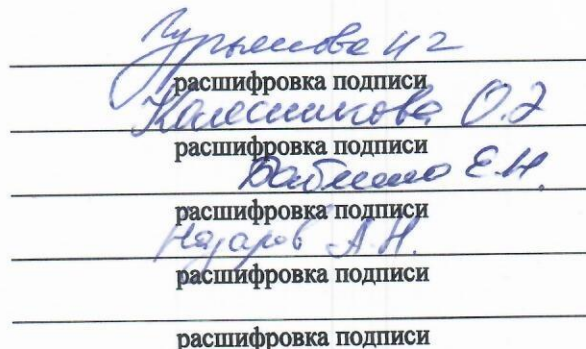 Гурьянова И Г
расшифровка подписи
Колесникова О.Э
расшифровка подписи
Е.Н.
расшифровка подписи
Назаров А.Н.
расшифровка подписи
расшифровка подписи